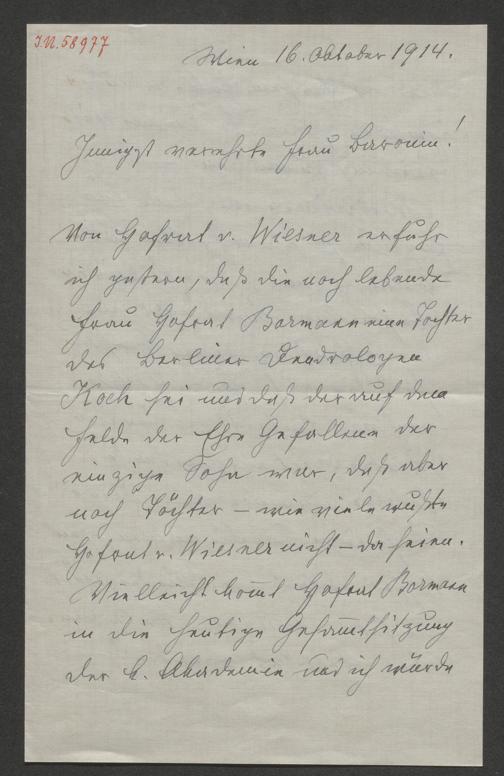 J.N. 58977
Wien 16. Oktober 1914.
Innigst verehrte Frau Baronin!
Von Hofrat v. Wiesner erfuhr
ich gestern, daß die noch lebende
Frau Hofrat Bormann eine Tochter
des Berliner Dendrologen
Koch sei und daß der auf dem
Felde der Ehre Gefallene der
einzige Sohn war, daß aber
noch Töchter – wie viele wußte
Hofrat v. Wiesner nicht – da seien.
Vielleicht kom̄t Hofrat Bormann
in die heutige Gesam̄tsitzung
der k. Akademie und ich würde